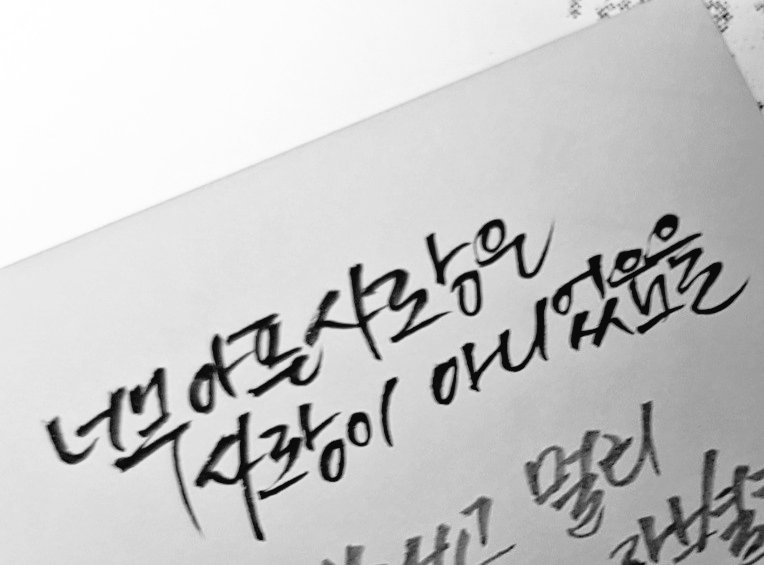 너무 아픈 사랑은
사랑이 아니었음을
멀리